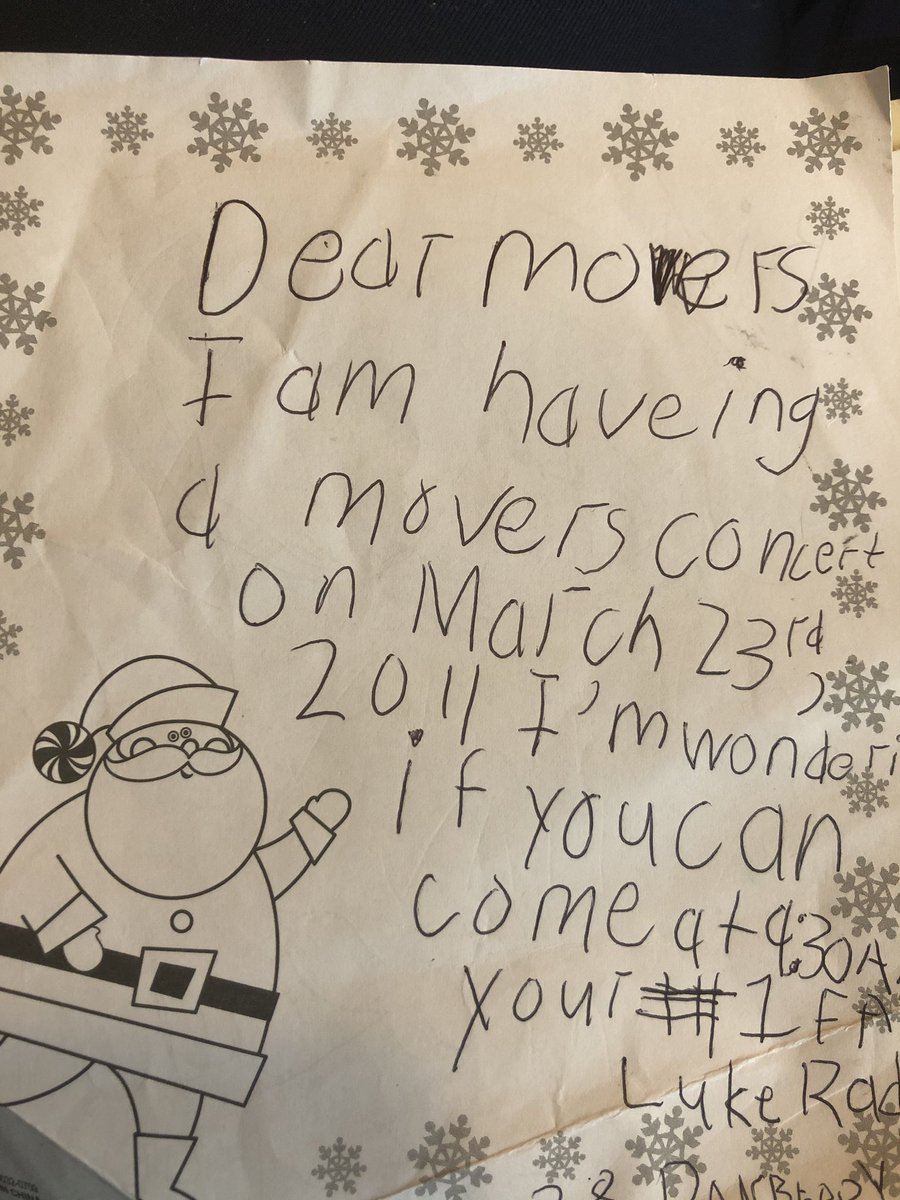 Dear movers
I am haveing
a movers concert
on March 23rd,
2011 I'm wonderi
if you can
come at 9:30 A
your #1 FA
Luke Rad